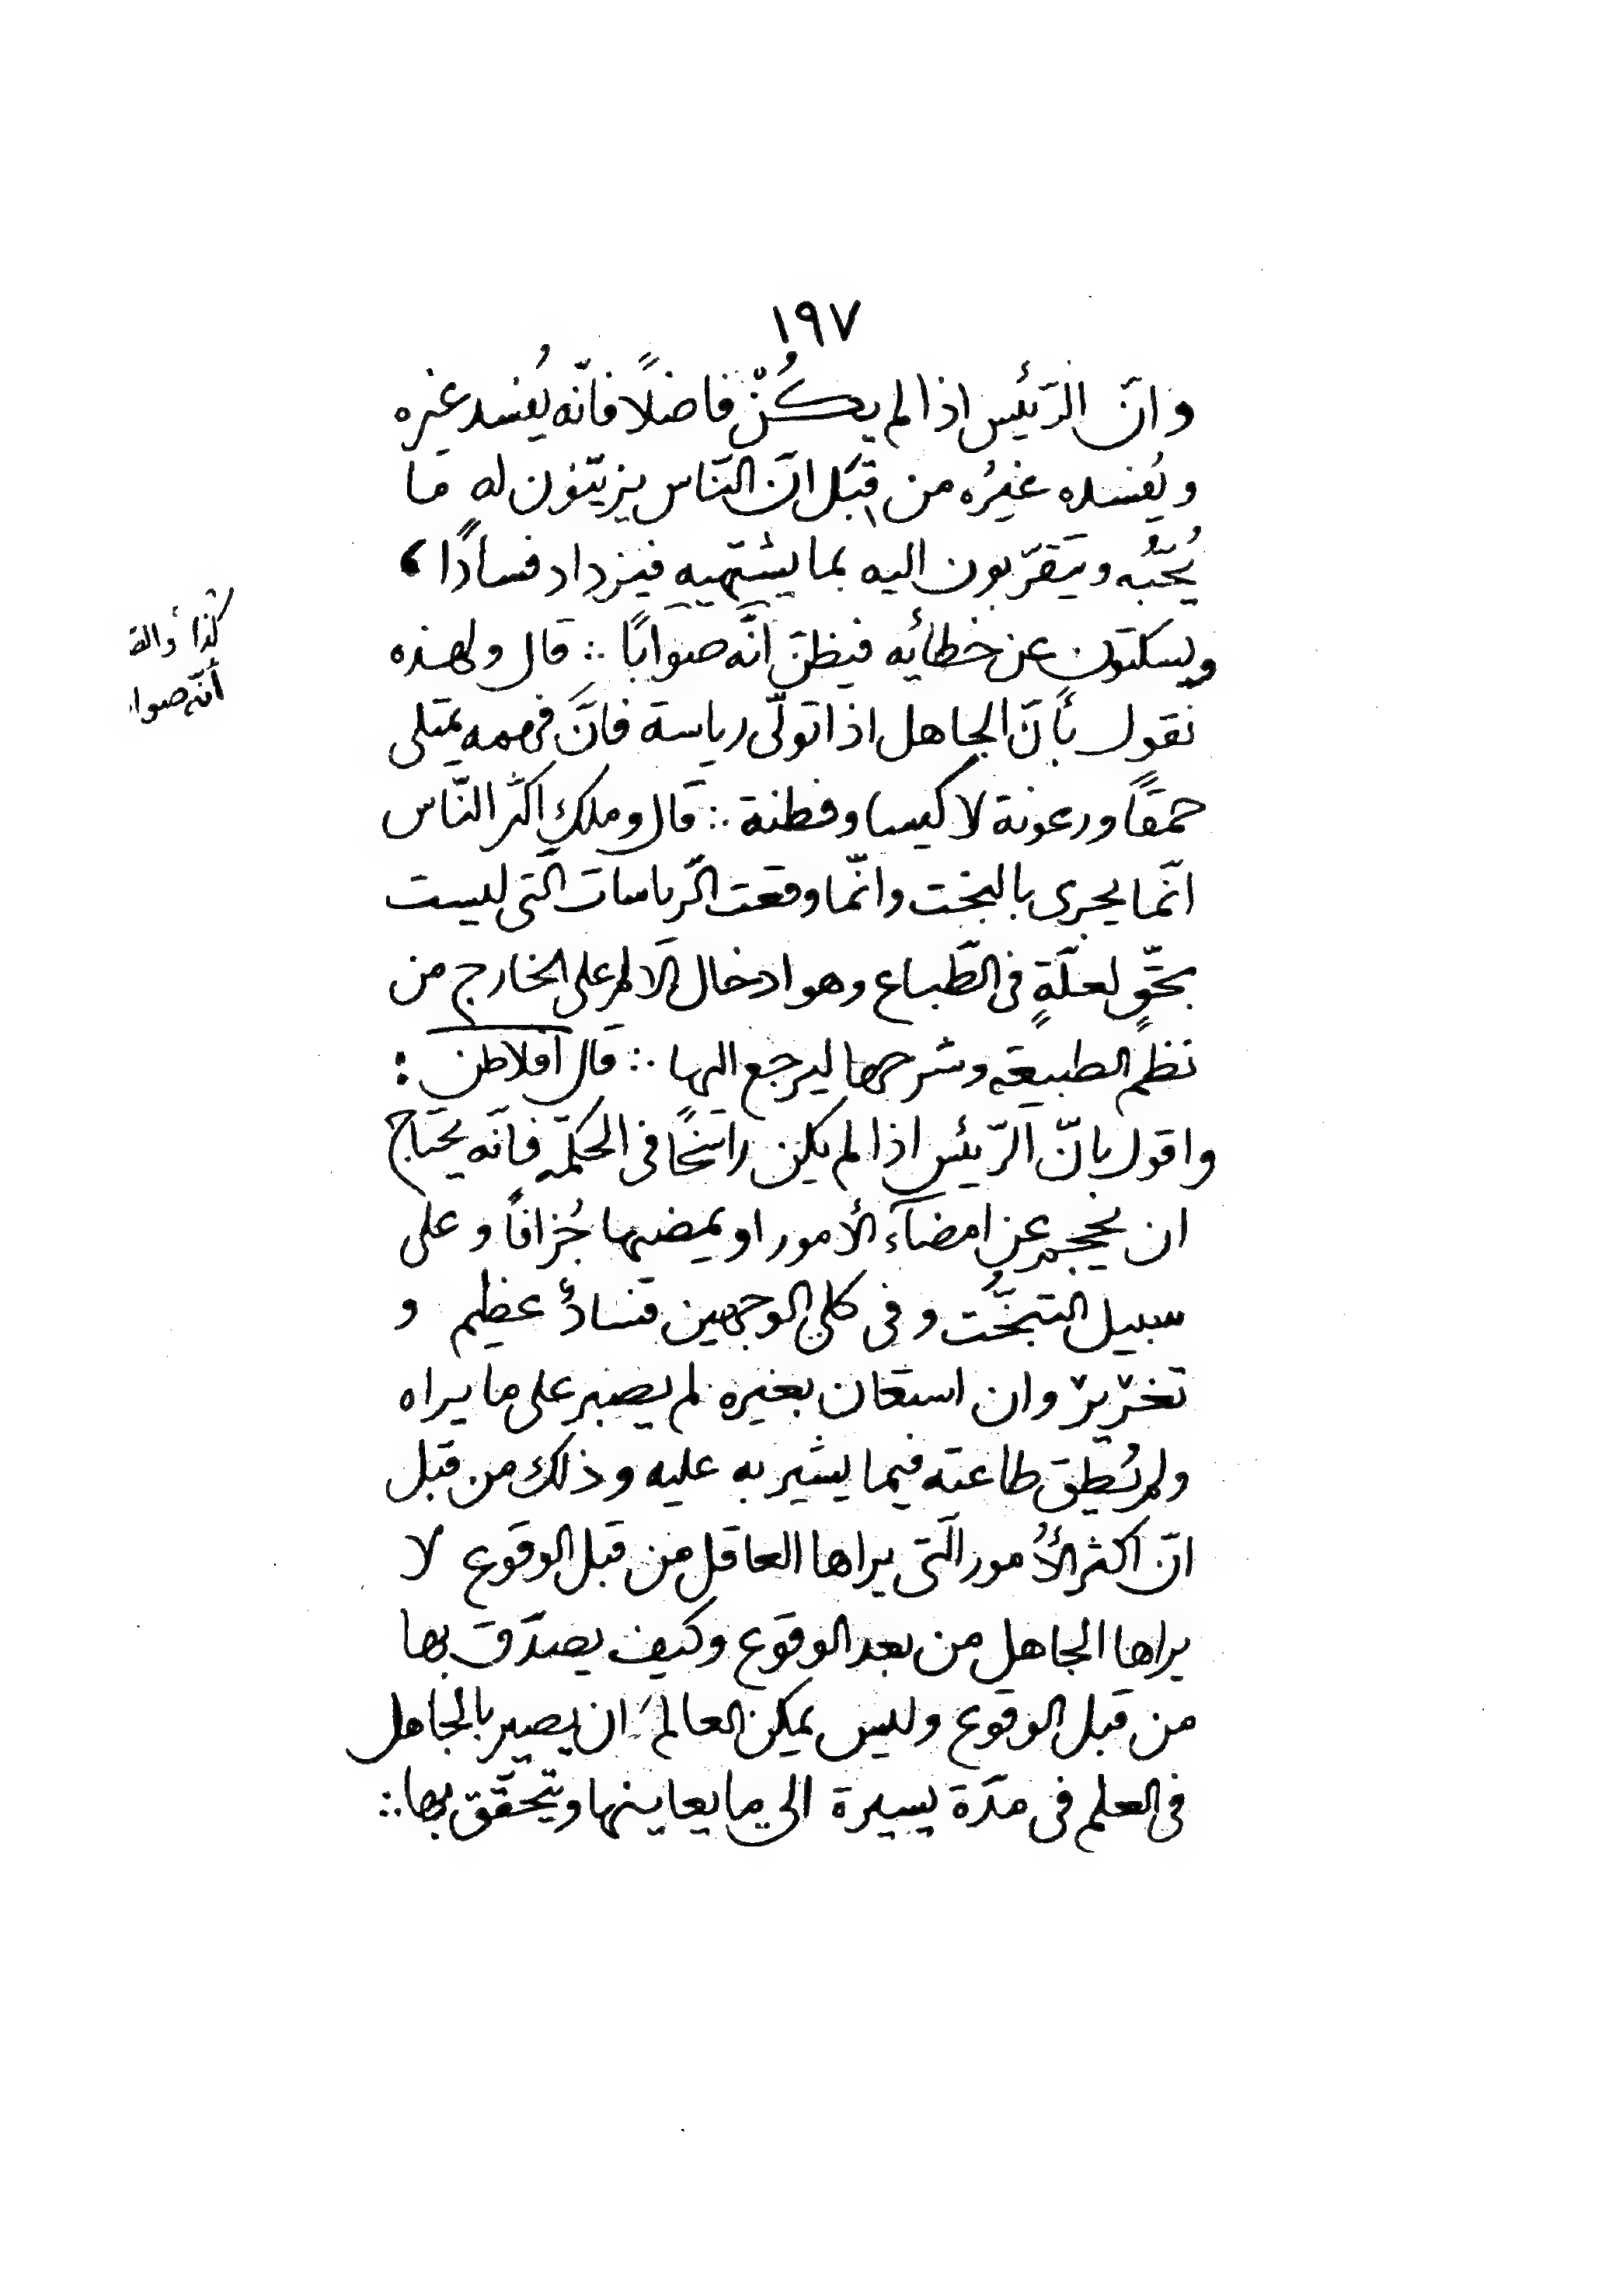 ١٩٧
وانّ الرّئيس اذا لم يكُنْ فاضلًا فانّه يُفسد غيره
ويُفسده غيرُه من قِبَل انّ النّاس يزيّنون له ما
يُحبُّه ويتقرّبون اليه بما يشتهيه فيزداد فسادًا ،
ويسكتون عن خطائه فيظنّ انّه صوابًا ∴ قال ولهذه
نقول بأنّ الجاهل اذا تولّى رياسة فانّ فهمه يمتلى
حمقًا ورعونة لا كيسا وفطنة ∴ قال وملك اكثر النّاس
انّما يجرى بالبخت وانّما وقعت الرّياسات الّتى ليست
بحقٍّ لعلّةٍ فى الطّباع وهو ادخال الالم على الخارج من
نظم الطبيعة وشرحها ليرجع اليها ∴ قال افلاطن :
واقول بانّ الرّئيس اذا لم يكن راسخًا فى الحكمة فانّه يحتاج
ان يحجم عن امضآء الأمور او يمضيها جُزافًا وعلى
سبيل التبخُّت وفى كلى الوجهين فسادٌ عظيم و
تغرير وان استعان بغيره لم يصبر على ما يراه
ولم يُطِق طاعته فيما يشير به عليه وذلك من قبل
انّ اكثر الأُمور الّتى يراها العاقل من قبل الوقوع لا
يراها الجاهل من بعد الوقوع وكيف يصدّق بها
من قبل الوقوع وليس يمكن العالم ان يصير بالجاهل
فى العلم فى مدّة يسيرة الى ما يعاينها ويتحقّق بها ∴
كذا
أنّه صوا